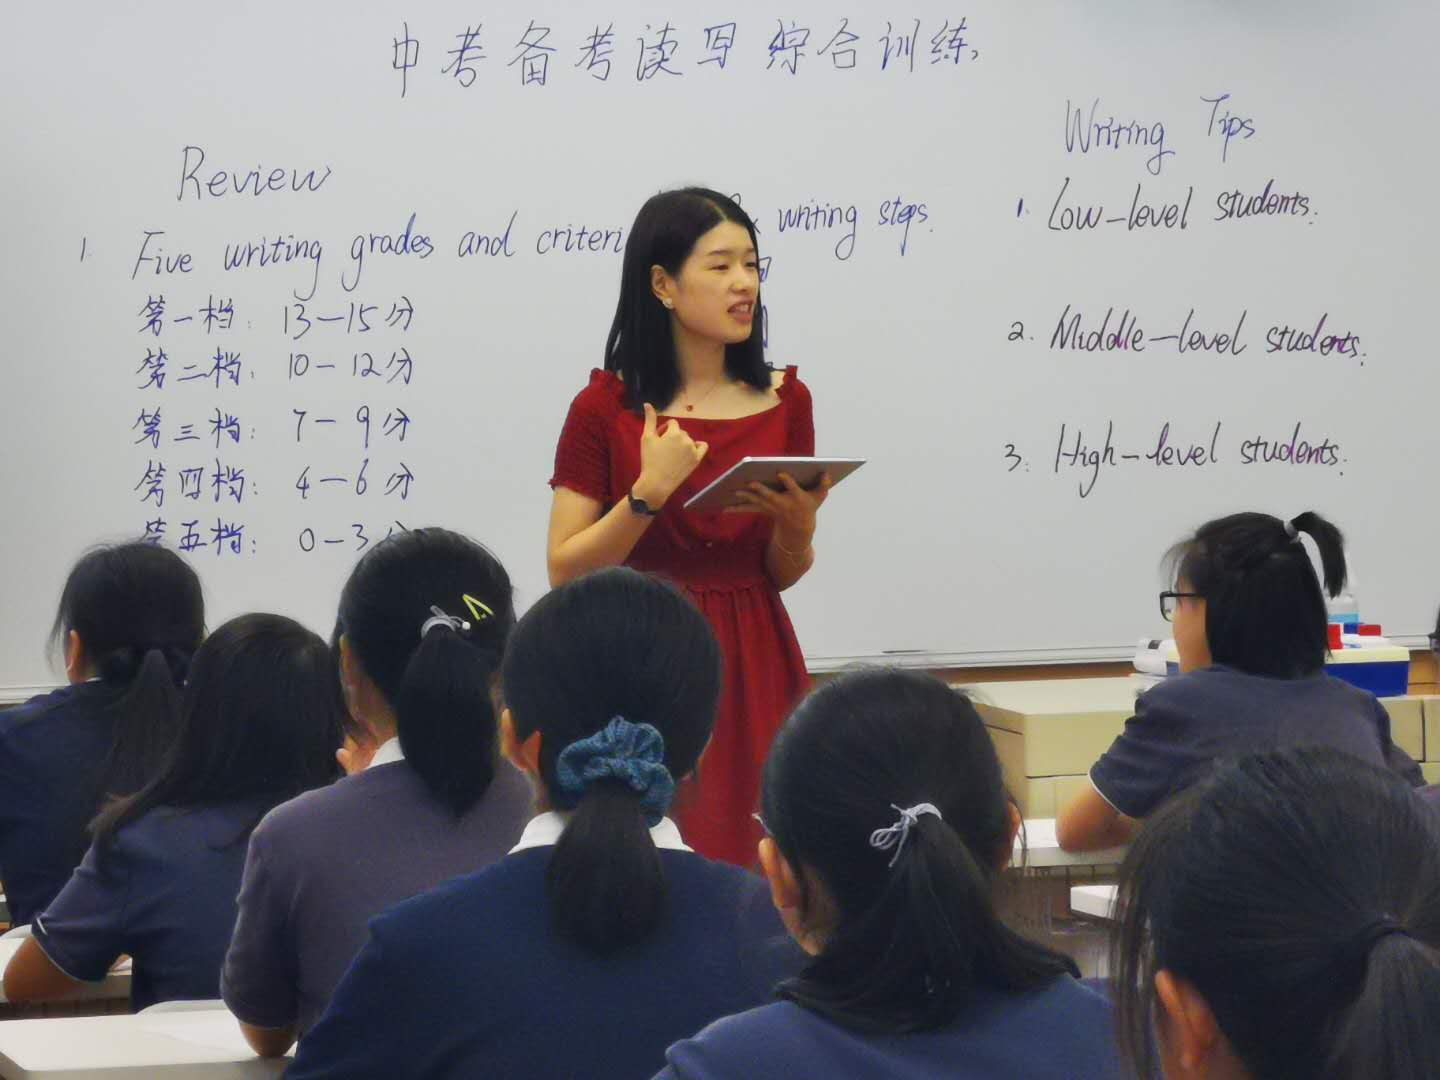 中考备考读写综合训练
Review
1. Five writing grades and criteri
writing steps.
第一档: 13—15分
第二档: 10—12分
第三档: 7—9分
第四档: 4—6分
第五档: 0—3分
Writing Tips
1. Low-level students.
2. Middle-level students.
3. High-level students.